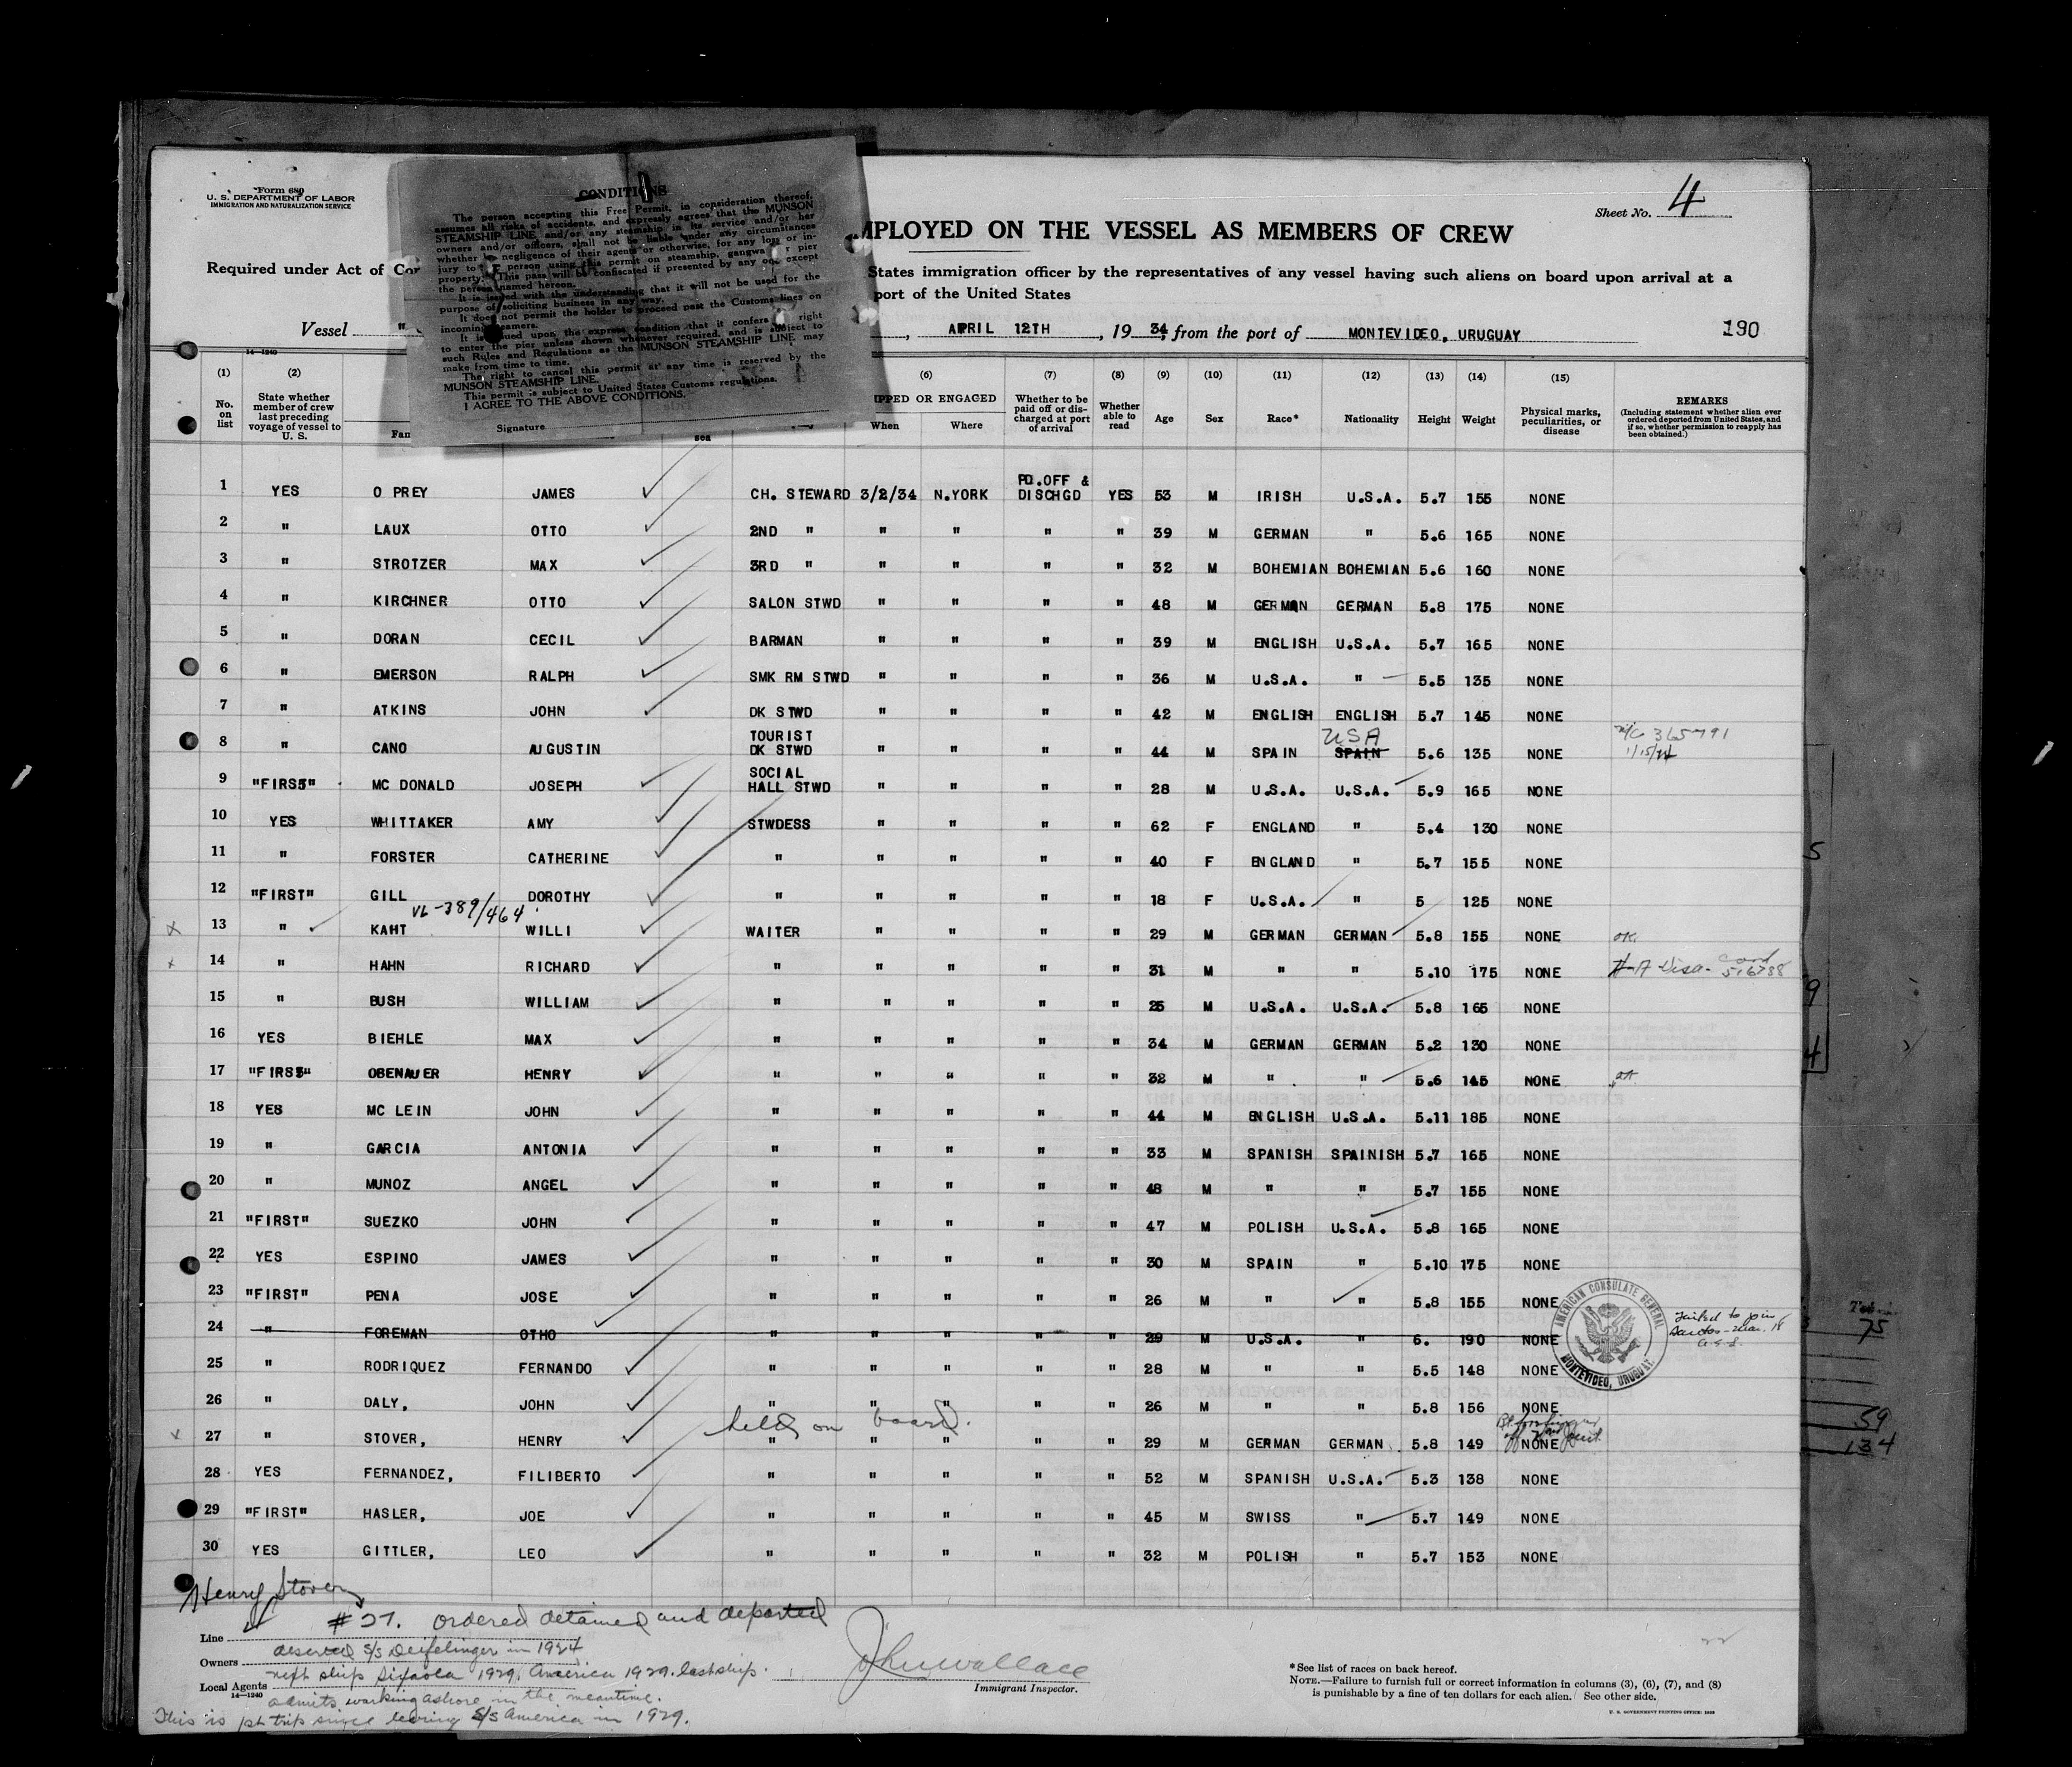 Form 680
U. S. DEPARTMENT OF LABOR
IMMIGRATION AND NATURALIZATION SERVICE
Sheet No. 4
MPLOYED ON THE VESSEL AS MEMBERS OF CREW
Required under Act of Con
States immigration officer by the representatives of any vessel having such aliens on board upon arrival at a
port of the United States
Vessel
, APRIL 12TH, 1934, from the port of MONTEVIDEO, URUGUAY
190
CONDITIONS
The person accepting this Free Permit, in consideration thereof,
assumes all risks of accidents, and expressly agrees that the MUNSON
STEAMSHIP LINE and/or any steamship in its service and/or her
owners and/or officers, shall not be liable under any circumstances
whether by negligence of their agents or otherwise, for any loss or in-
jury to the person using this permit on steamship, gangway or pier
property. This pass will be confiscated if presented by any one except
the person named hereon.
It is issued with the understanding that it will not be used for the
purpose of soliciting business in any way.
It does not permit the holder to proceed past the Customs lines on
incoming steamers.
It is issued upon the express condition that it confers no right
to enter the pier unless shown whenever required, and is subject to
such Rules and Regulations as the MUNSON STEAMSHIP LINE may
make from time to time.
The right to cancel this permit at any time is reserved by the
MUNSON STEAMSHIP LINE.
This permit is subject to United States Customs regulations.
I AGREE TO THE ABOVE CONDITIONS.
Signature
14—1240
(1) (2) (6) (7) (8) (9) (10) (11) (12) (13) (14) (15)
No. on list
State whether member of crew last preceding voyage of vessel to U. S.
Fam
sea
IPPED OR ENGAGED
When Where
Whether to be paid off or discharged at port of arrival
Whether able to read
Age Sex Race* Nationality Height Weight
Physical marks, peculiarities, or disease
REMARKS
(Including statement whether alien ever ordered deported from United States, and if so, whether permission to reapply has been obtained.)
1 YES O PREY JAMES CH. STEWARD 3/2/34 N.YORK PD.OFF & DISCHGD YES 53 M IRISH U.S.A. 5.7 155 NONE
2 " LAUX OTTO 2ND " " " " " 39 M GERMAN " 5.6 165 NONE
3 " STROTZER MAX 3RD " " " " " 32 M BOHEMIAN BOHEMIAN 5.6 160 NONE
4 " KIRCHNER OTTO SALON STWD " " " " 48 M GERMAN GERMAN 5.8 175 NONE
5 " DORAN CECIL BARMAN " " " " 39 M ENGLISH U.S.A. 5.7 165 NONE
6 " EMERSON RALPH SMK RM STWD " " " " 36 M U.S.A. " 5.5 135 NONE
7 " ATKINS JOHN DK STWD " " " " 42 M ENGLISH ENGLISH 5.7 145 NONE
8 " CANO AUGUSTIN TOURIST DK STWD " " " " 44 M SPAIN SPAIN USA 5.6 135 NONE 365791
9 "FIRST" MC DONALD JOSEPH SOCIAL HALL STWD " " " " 28 M U.S.A. U.S.A. 5.9 165 NONE
10 YES WHITTAKER AMY STWDESS " " " " 62 F ENGLAND " 5.4 130 NONE
11 " FORSTER CATHERINE " " " " " 40 F ENGLAND " 5.7 155 NONE
12 "FIRST" GILL DOROTHY " " " " " 18 F U.S.A. " 5 125 NONE
VL-389/464
13 " KAHT WILLI WAITER " " " " 29 M GERMAN GERMAN 5.8 155 NONE OK.
14 " HAHN RICHARD " " " " " 31 M " " 5.10 175 NONE Visa- card 516788
15 " BUSH WILLIAM " " " " " 25 M U.S.A. U.S.A. 5.8 165 NONE
16 YES BIEHLE MAX " " " " " 34 M GERMAN GERMAN 5.2 130 NONE
17 "FIRST" OBENAUER HENRY " " " " " 32 M " " 5.6 145 NONE OK.
18 YES MC LEIN JOHN " " " " " 44 M ENGLISH U.S.A. 5.11 185 NONE
19 " GARCIA ANTONIA " " " " " 33 M SPANISH SPAINISH 5.7 165 NONE
20 " MUNOZ ANGEL " " " " " 48 M " " 5.7 155 NONE
21 "FIRST" SUEZKO JOHN " " " " " 47 M POLISH U.S.A. 5.8 165 NONE
22 YES ESPINO JAMES " " " " " 30 M SPAIN " 5.10 175 NONE
23 "FIRST" PENA JOSE " " " " " 26 M " " 5.8 155 NONE
24 " FOREMAN OTHO " " " " " 29 M U.S.A. " 6. 190 NONE Failed to join Santos - Mar. 18
AMERICAN CONSULATE GENERAL MONTEVIDEO, URUGUAY.
25 " RODRIQUEZ FERNANDO " " " " " 28 M " " 5.5 148 NONE
26 " DALY, JOHN " " " " " 26 M " " 5.8 156 NONE
held on board.
27 " STOVER, HENRY " " " " " 29 M GERMAN GERMAN 5.8 149 NONE
28 YES FERNANDEZ, FILIBERTO " " " " " 52 M SPANISH U.S.A. 5.3 138 NONE
29 "FIRST" HASLER, JOE " " " " " 45 M SWISS " 5.7 149 NONE
30 YES GITTLER, LEO " " " " " 32 M POLISH " 5.7 153 NONE
5
9
4
75
59
134
Henry Stover
#27. ordered detained and deported
Line
deserted S/S in 1924
Owners
next ship Sixaola 1929, America 1929. last ship.
Local Agents
14—1240
admits working ashore in the meantime.
This is 1st trip since leaving S/S America in 1929.
John Wallace
Immigrant Inspector.
*See list of races on back hereof.
NOTE.—Failure to furnish full or correct information in columns (3), (6), (7), and (8)
is punishable by a fine of ten dollars for each alien. See other side.
U. S. GOVERNMENT PRINTING OFFICE: 1933